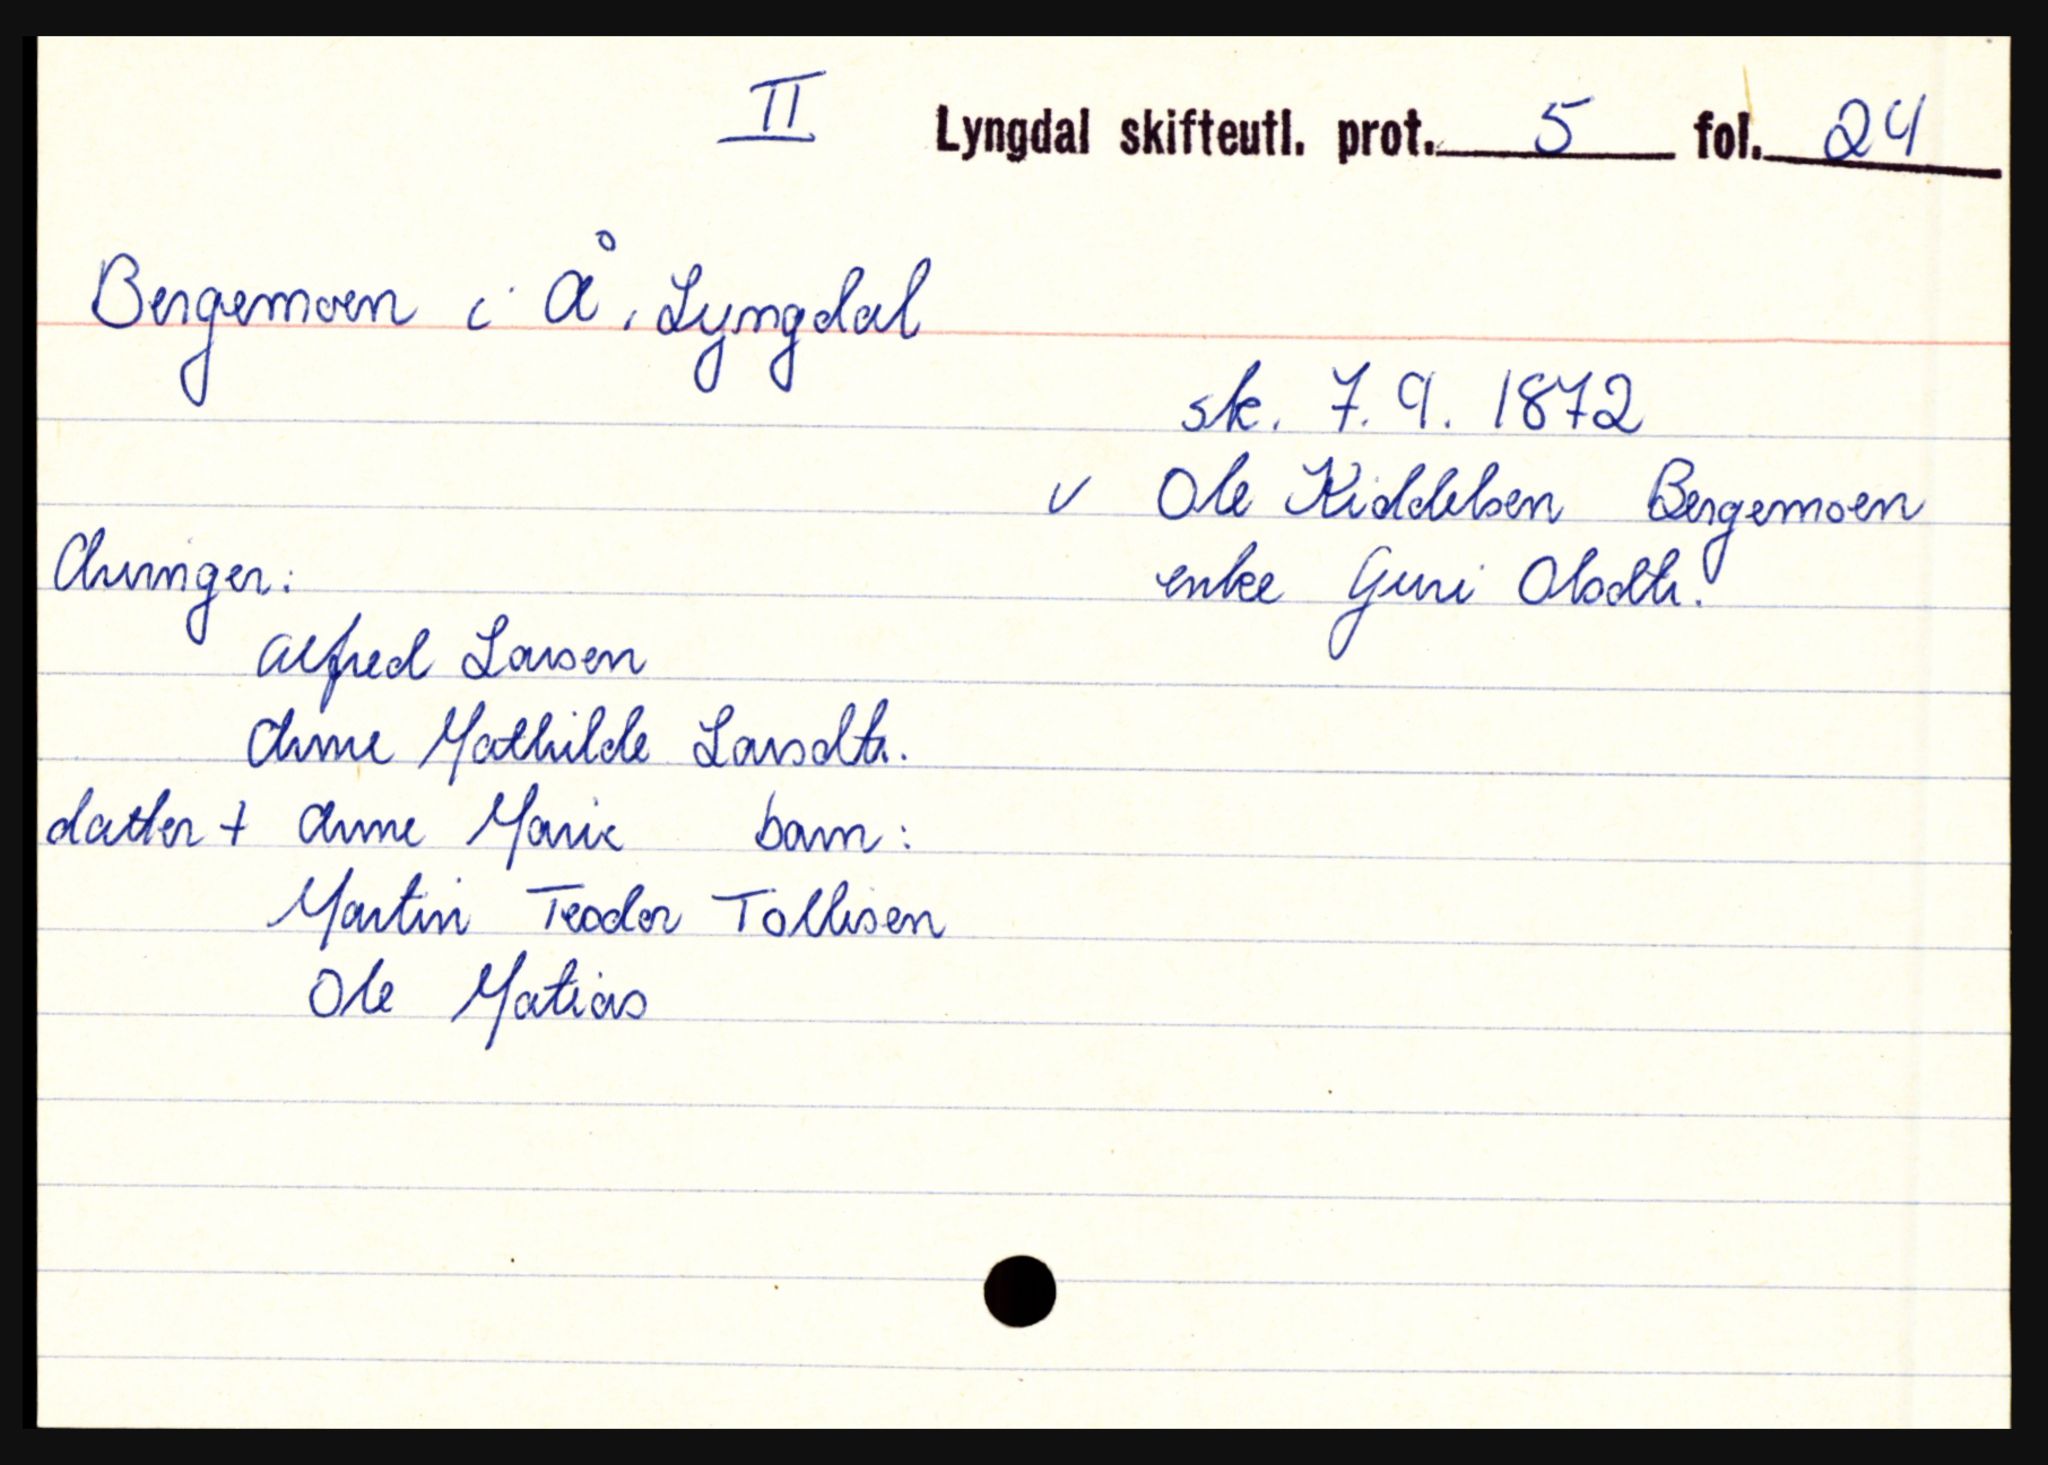 II Lyngdal skifteutl. prot. 5 fol. 24
Bergemoen i Å, Lyngdal
sk. 7.9. 1872
v Ole Kiddelsen Bergemoen
enke Guri Olsdtr.
Arvinger:
Alfred Larsen
Anne Mathilde Larsdtr.
datter + Anne Marie barn:
Martin Teodor Tollisen
Ole Matias